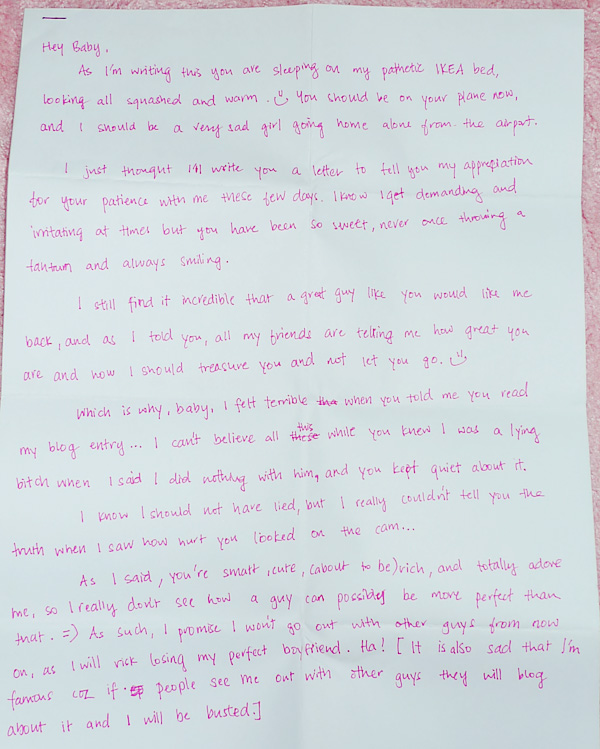 Hey Baby,
As I'm writing this you are sleeping on my pathetic IKEA bed,
looking all squashed and warm. :) You should be on your plane now,
and I should be a very sad girl going home alone from the airport.
I just thought I'll write you a letter to tell you my appreciation
for your patience with me these few days. I know I get demanding and
irritating at times but you have been so sweet, never once throwing a
tantrum and always smiling.
I still find it incredible that a great guy like you would like me
back, and as I told you, all my friends are telling me how great you
are and how I should treasure you and not let you go. :)
Which is why, baby, I felt terrible the when you told me you read
my blog entry... I can't believe all these this while you knew I was a lying
bitch when I said I did nothing with him, and you kept quiet about it.
I know I should not have lied, but I really couldn't tell you the
truth when I saw how hurt you looked on the cam...
As I said, you're smart, cute, (about to be) rich, and totally adore
me, so I really don't see how a guy can possibly be more perfect than
that. =) As such, I promise I won't go out with other guys from now
on, as I will risk losing my perfect boyfriend. Ha! [It is also sad that I'm
famous coz if people see me out with other guys they will blog
about it and I will be busted.]